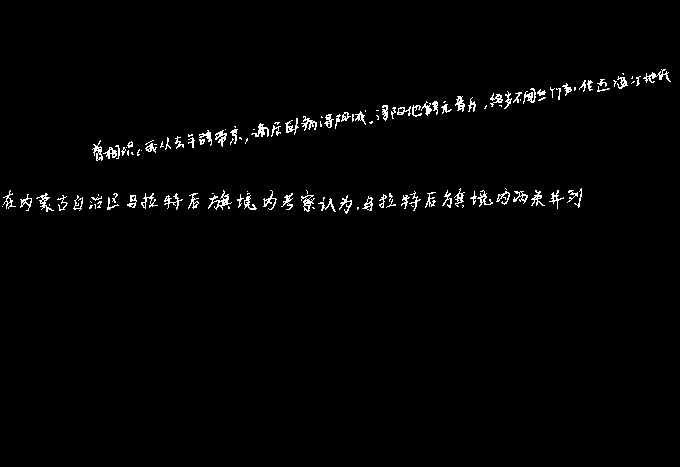 曾相识!我从去年辞帝京,谪居卧病浔阳城。浔阳地僻无音乐,终岁不闻丝竹声。住近湓江地低
在内蒙古自治区乌拉特后旗境内考察认为,乌拉特后旗境内两条并列